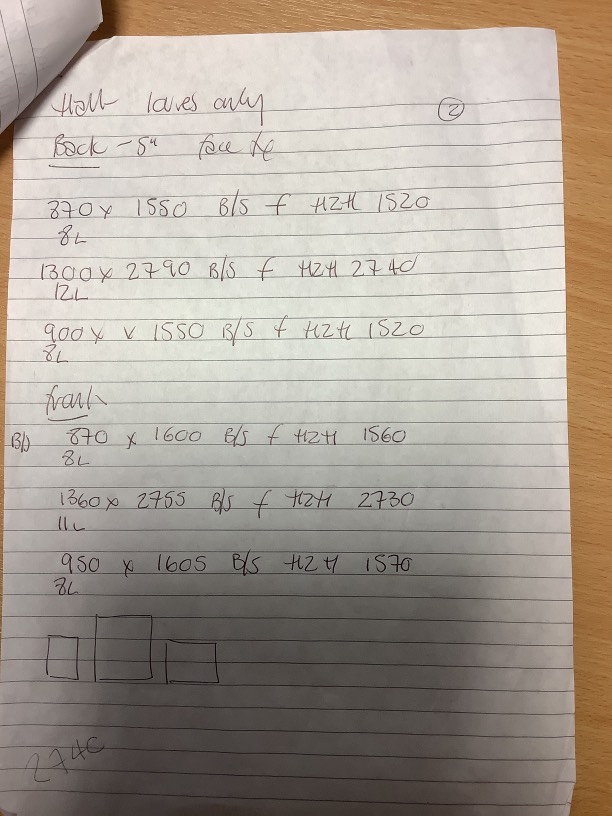 Hall louvres only
②
Back - 5" face fix
870 x 1550 B/S f H2H 1520
8L
1300 x 2790 B/S f H2H 2740
12L
900 x x 1550 B/S f H2H 1520
8L
front
B/D 870 x 1600 B/S f H2H 1560
8L
1360 x 2755 B/S f H2H 2730
11L
950 x 1605 B/S H2H 1570
8L
2740